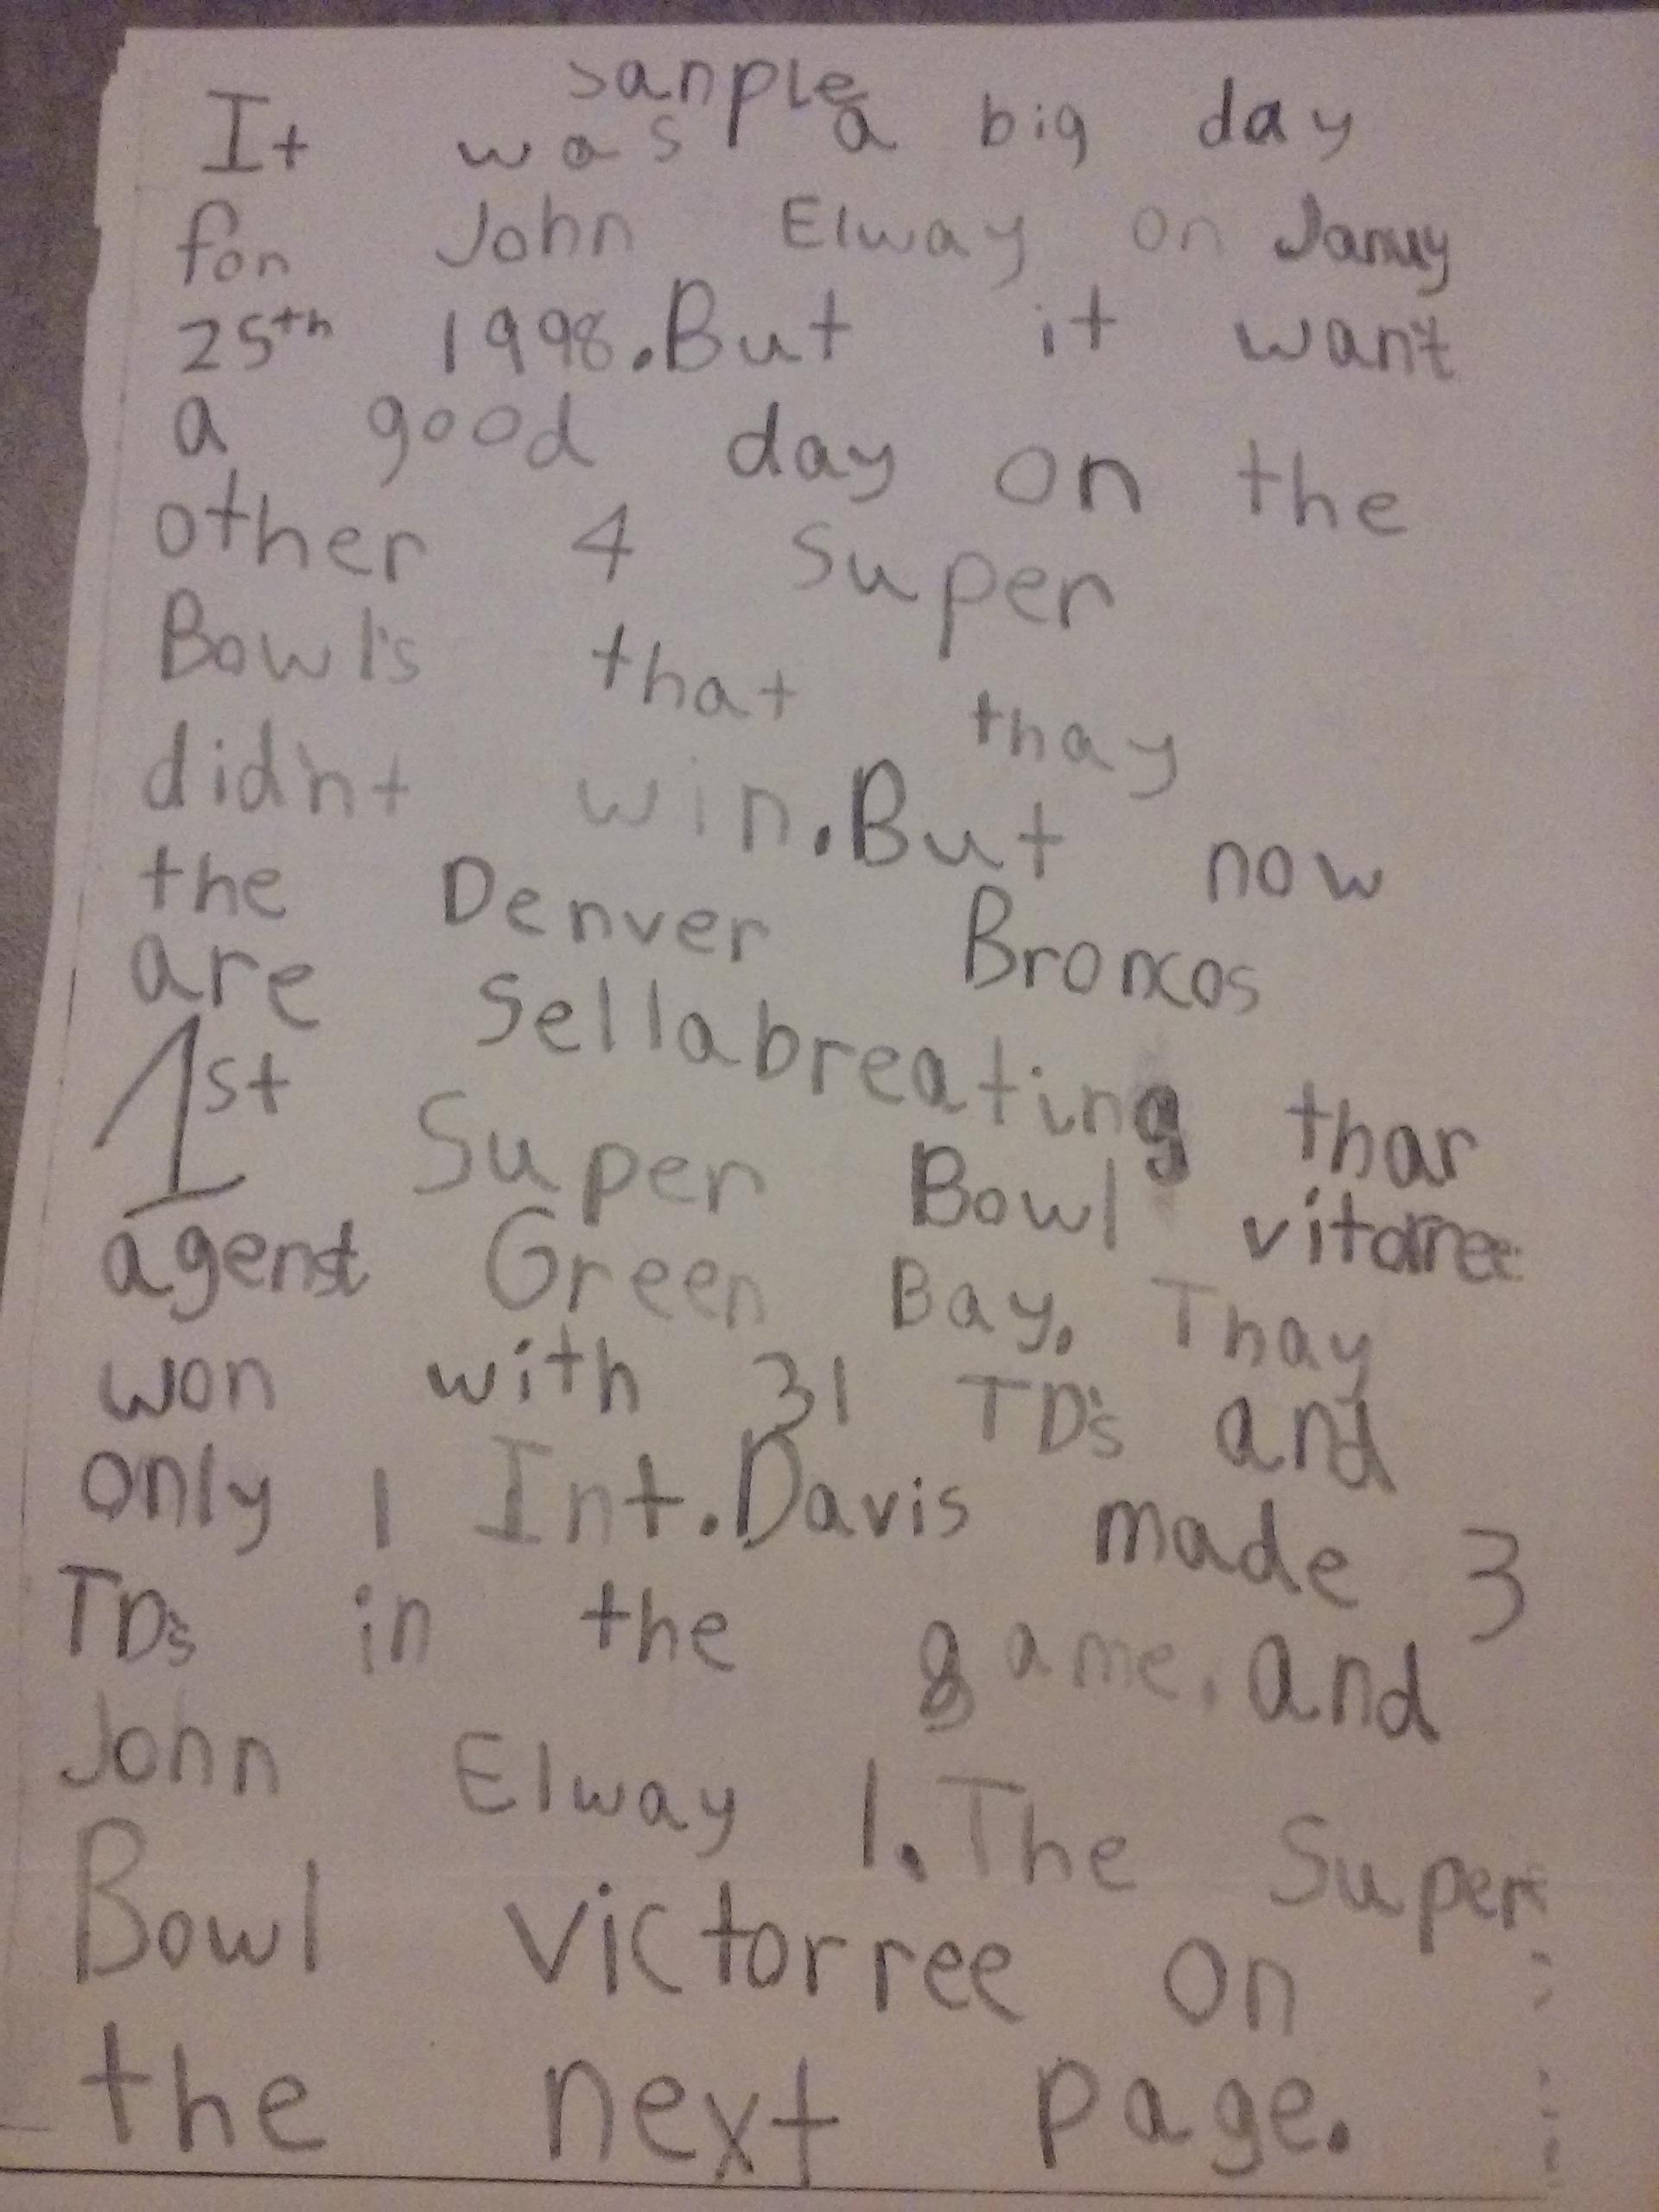 sanple
It was a big day
for John Elway on Januy
25th 1998. But it want
a good day on the
other 4 Super
Bowl's that thay
did'nt win. But now
the Denver Broncos
are Sellabreating thar
1st Super Bowl vitorree
agenst Green Bay. Thay
won with 31 TD's and
only 1 Int. Davis made 3
TD's in the game. and
John Elway 1. The Super
Bowl victorree on
the next page.